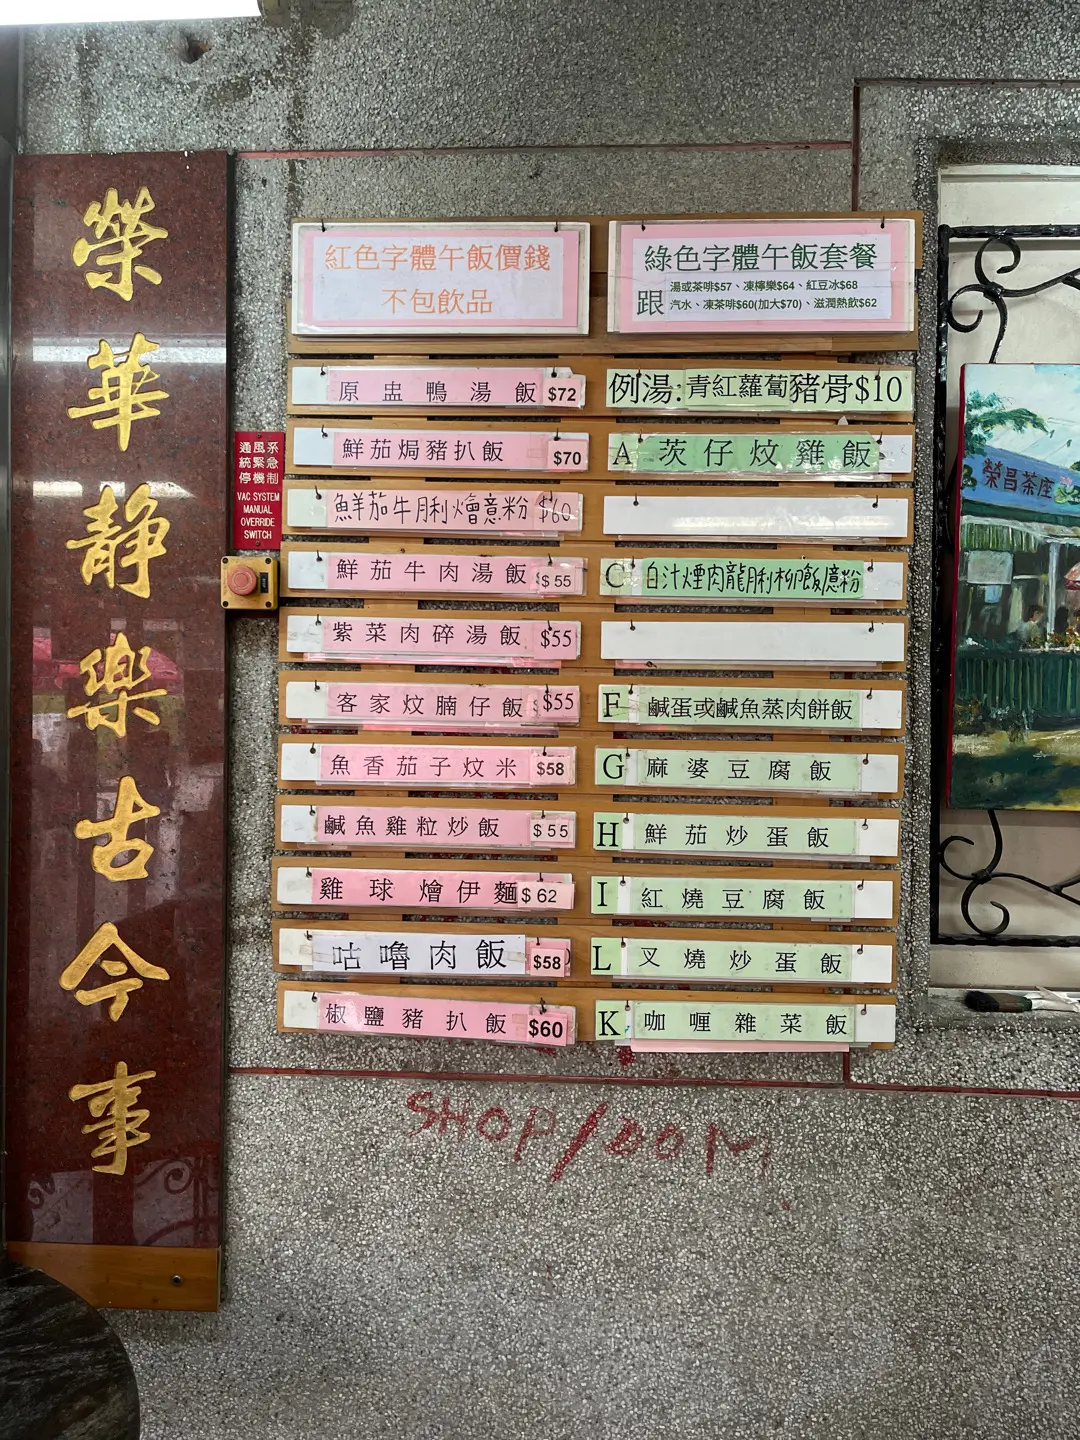 榮華靜樂古今事
通風系
統緊急
停機制
VAC SYSTEM
MANUAL
OVERRIDE
SWITCH
紅色字體午飯價錢
不包飲品
原盅鴨湯飯 $72
鮮茄焗豬扒飯 $70
鮮茄牛脷燴意粉 $60
鮮茄牛肉湯飯 $55
紫菜肉碎湯飯 $55
客家炆腩仔飯 $55
魚香茄子炆米 $58
鹹魚雞粒炒飯 $55
雞球燴伊麵 $62
咕嚕肉飯 $58
椒鹽豬扒飯 $60
綠色字體午飯套餐
跟 湯或茶啡$57、凍檸樂$64、紅豆冰$68
汽水、凍茶啡$60(加大$70)、滋潤熱飲$62
例湯:青紅蘿蔔豬骨$10
A 茨仔炆雞飯
C 白汁煙肉龍脷柳飯/意粉
F 鹹蛋或鹹魚蒸肉餅飯
G 麻婆豆腐飯
H 鮮茄炒蛋飯
I 紅燒豆腐飯
L 叉燒炒蛋飯
K 咖喱雜菜飯
榮昌茶座
SHOP/